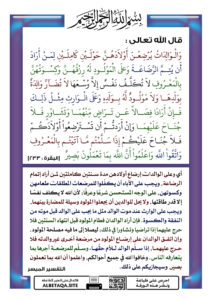 بسم الله الرحمن الرحيم
قال الله تعالى :
وَالْوَالِدَاتُ يُرْضِعْنَ أَوْلَادَهُنَّ حَوْلَيْنِ كَامِلَيْنِ لِمَنْ أَرَادَ
أَن يُتِمَّ الرَّضَاعَةَ وَعَلَى الْمَوْلُودِ لَهُ رِزْقُهُنَّ وَكِسْوَتُهُنَّ
بِالْمَعْرُوفِ لَا تُكَلَّفُ نَفْسٌ إِلَّا وُسْعَهَا لَا تُضَارَّ وَالِدَةٌ
بِوَلَدِهَا وَلَا مَوْلُودٌ لَّهُ بِوَلَدِهِ وَعَلَى الْوَارِثِ مِثْلُ ذَلِكَ
فَإِنْ أَرَادَا فِصَالًا عَن تَرَاضٍ مِّنْهُمَا وَتَشَاوُرٍ فَلَا
جُنَاحَ عَلَيْهِمَا وَإِنْ أَرَدتُّمْ أَن تَسْتَرْضِعُوا أَوْلَادَكُمْ
فَلَا جُنَاحَ عَلَيْكُمْ إِذَا سَلَّمْتُم مَّا آتَيْتُم بِالْمَعْرُوفِ
وَاتَّقُوا اللَّهَ وَاعْلَمُوا أَنَّ اللَّهَ بِمَا تَعْمَلُونَ بَصِيرٌ
(البقرة : ٢٣٣)
أي وعلى الوالدات إرضاع أولادهن مدة سنتين كاملتين لمن أراد إتمام
الرضاعة، ويجب على الآباء أن يكفلوا للمرضعات المطلقات طعامهن
وكسوتهن، على الوجه المستحسن شرعًا وعرفًا؛ لأن الله لا يكلف نفسًا
إلا قدر طاقتها، ولا يحل للوالدين أن يجعلوا المولود وسيلة للمضارة بينهما،
ويجب على الوارث عند موت الوالد مثل ما يجب على الوالد قبل موته من
النفقة والكسوة. فإن أراد الوالدان فطام المولود قبل انتهاء السنتين فلا
حرج عليهما إذا تراضيا وتشاورا في ذلك؛ ليصلا إلى ما فيه مصلحة المولود.
وإن اتفق الوالدان على إرضاع المولود من مرضعة أخرى غير والدته فلا
حرج عليهما، إذا سلَّم الوالد للأم حقَّها، وسلَّم للمرضعة أجرها بما
يتعارفه الناس. وخافوا الله في جميع أحوالكم، واعلموا أن الله بما تعملون
بصير، وسيجازيكم على ذلك.
التفسير الميسر
ALBETAQA.SITE